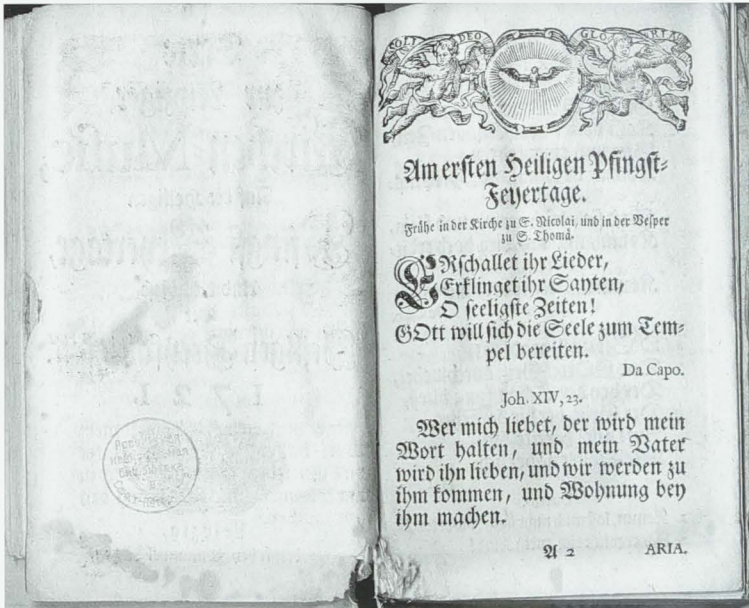 SOLI DEO GLORIA
Am ersten Heiligen Pfingst-
Feyertage.
Frühe in der Kirche zu S. Nicolai, und in der Vesper
zu S. Thomä.
ERschallet ihr Lieder,
Erklinget ihr Sayten,
O seeligste Zeiten!
GOtt will sich die Seele zum Tem-
pel bereiten.
Da Capo.
Joh. XIV, 23.
Wer mich liebet, der wird mein
Wort halten, und mein Vater
wird ihn lieben, und wir werden zu
ihm kommen, und Wohnung bey
ihm machen.
A 2 ARIA.